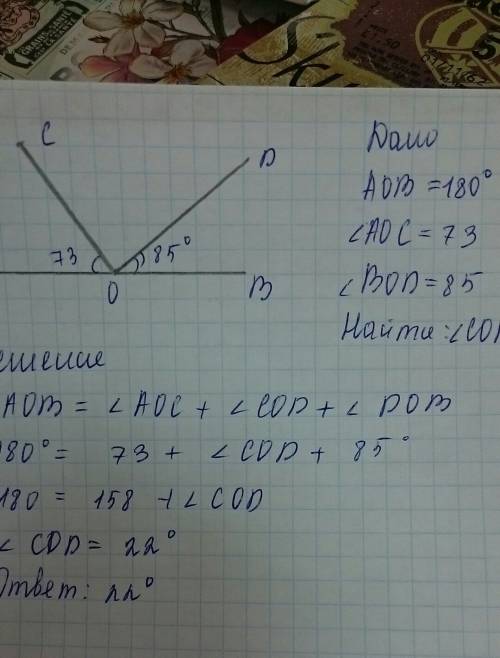 C
D
73
85°
O
B
Дано
AOB = 180°
∠AOC = 73
∠BOD = 85
Найти: ∠COD
ешение
AOB = ∠AOC + ∠COD + ∠DOB
180° = 73 + ∠COD + 85°
180 = 158 + ∠COD
∠COD = 22°
Ответ: 22°